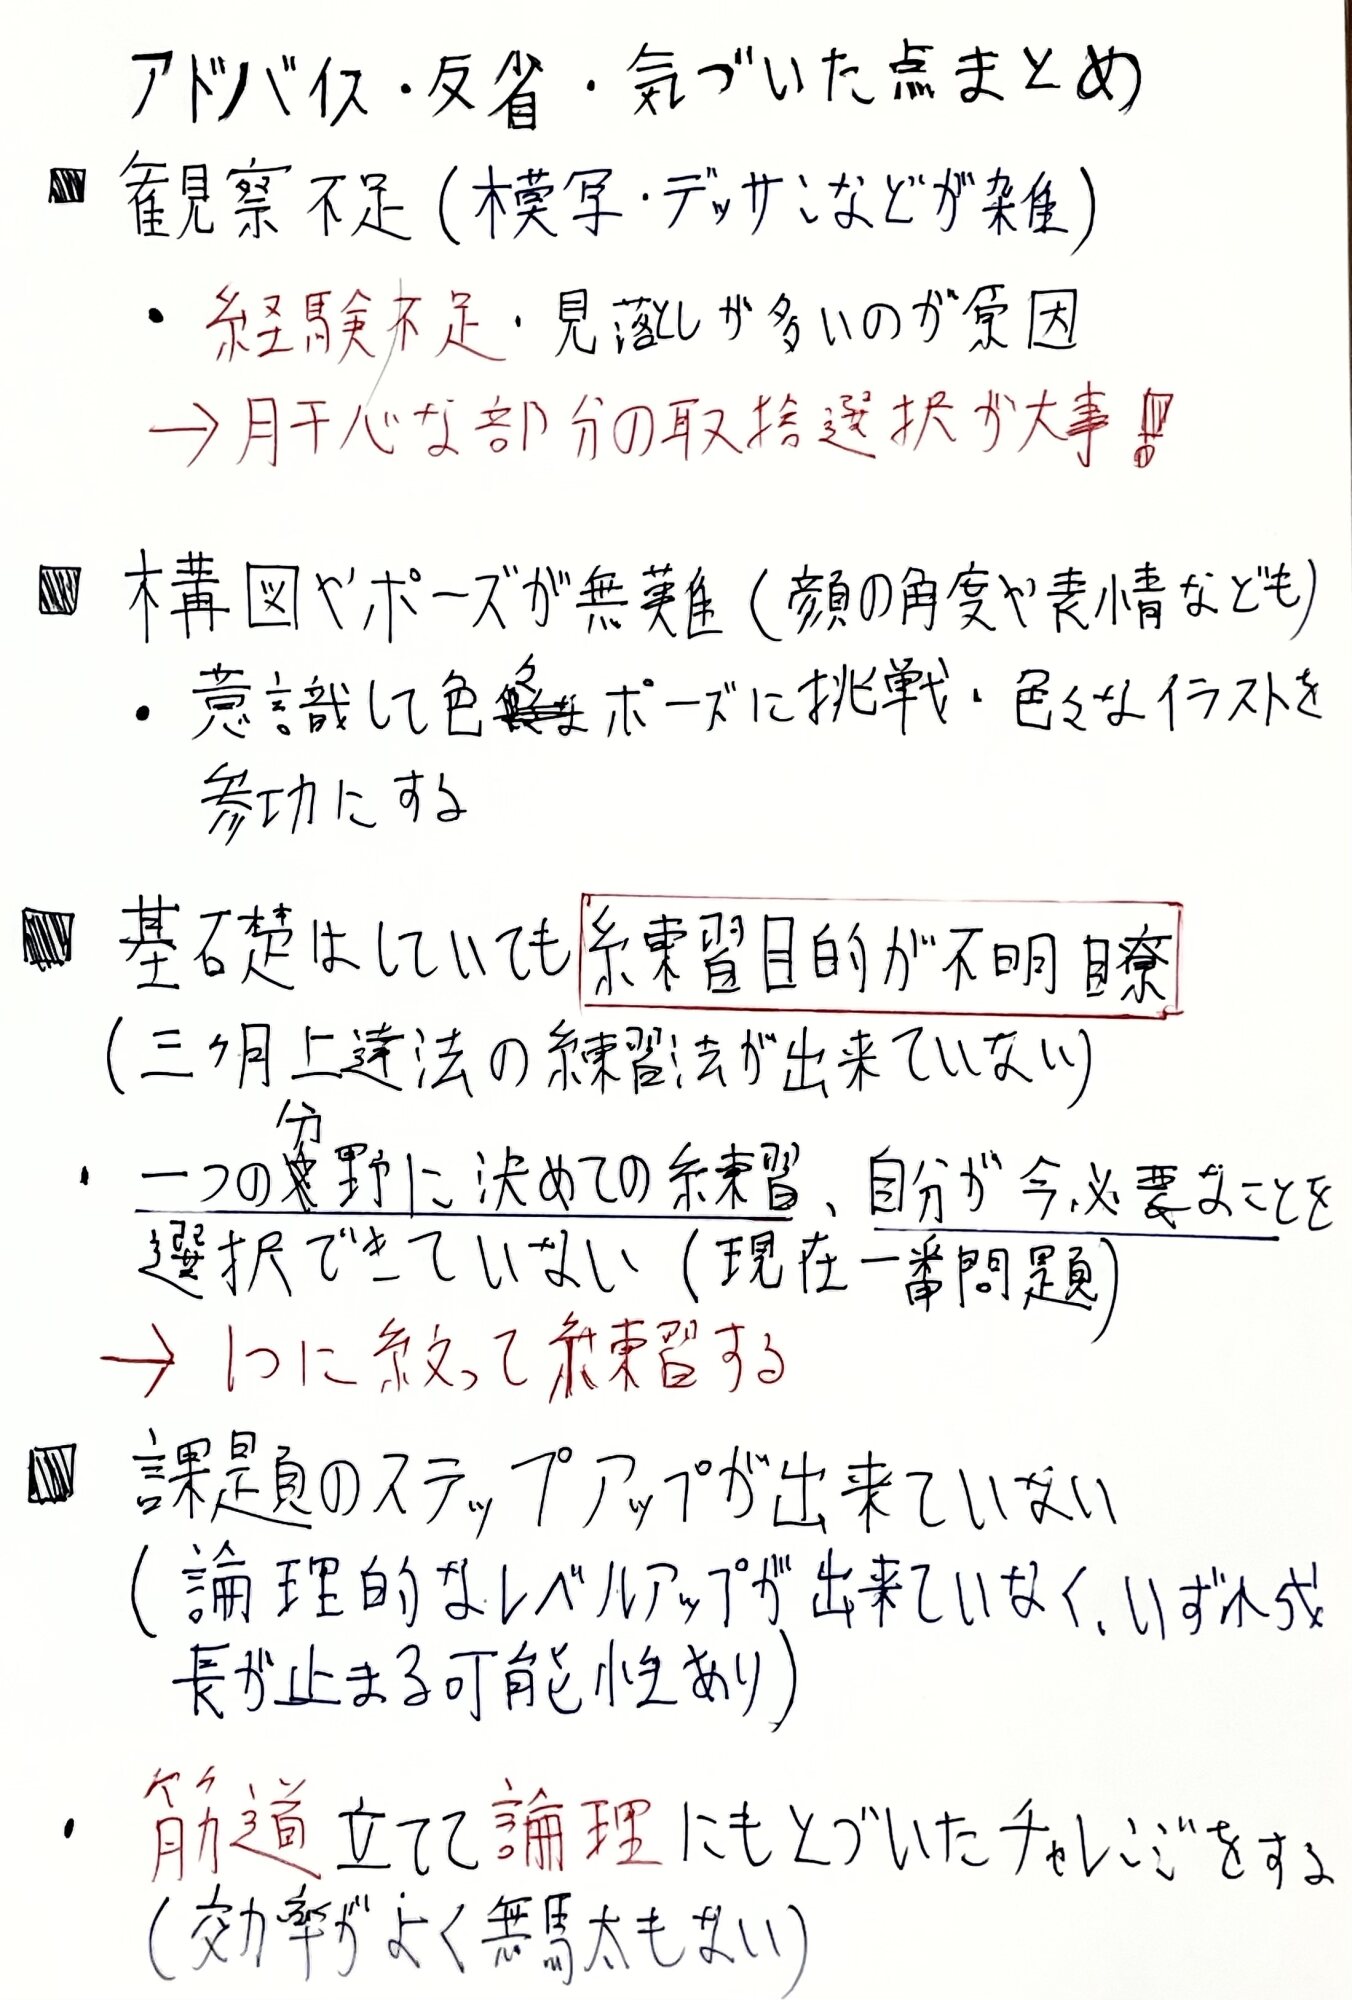 アドバイス・反省・気づいた点まとめ
■ 観察不足(模写・デッサンなどが雑)
・経験不足・見落としが多いのが原因
→肝心な部分の取捨選択が大事!
■ 構図やポーズが無難(顔の角度や表情なども)
・意識して色々なポーズに挑戦・色々なイラストを
参功にする
■ 基礎はしていても練習目的が不明瞭
(三ヶ月上達法の練習法が出来ていない)
・一つの分野に決めての練習、自分が今必要なことを
選択できていない(現在一番問題)
→1つに絞って練習する
■ 課題のステップアップが出来ていない
(論理的なレベルアップが出来ていなく、いずれ成
長が止まる可能性あり)
・筋道立てて論理にもとづいたチャレンジをする
(効率がよく無駄もない)